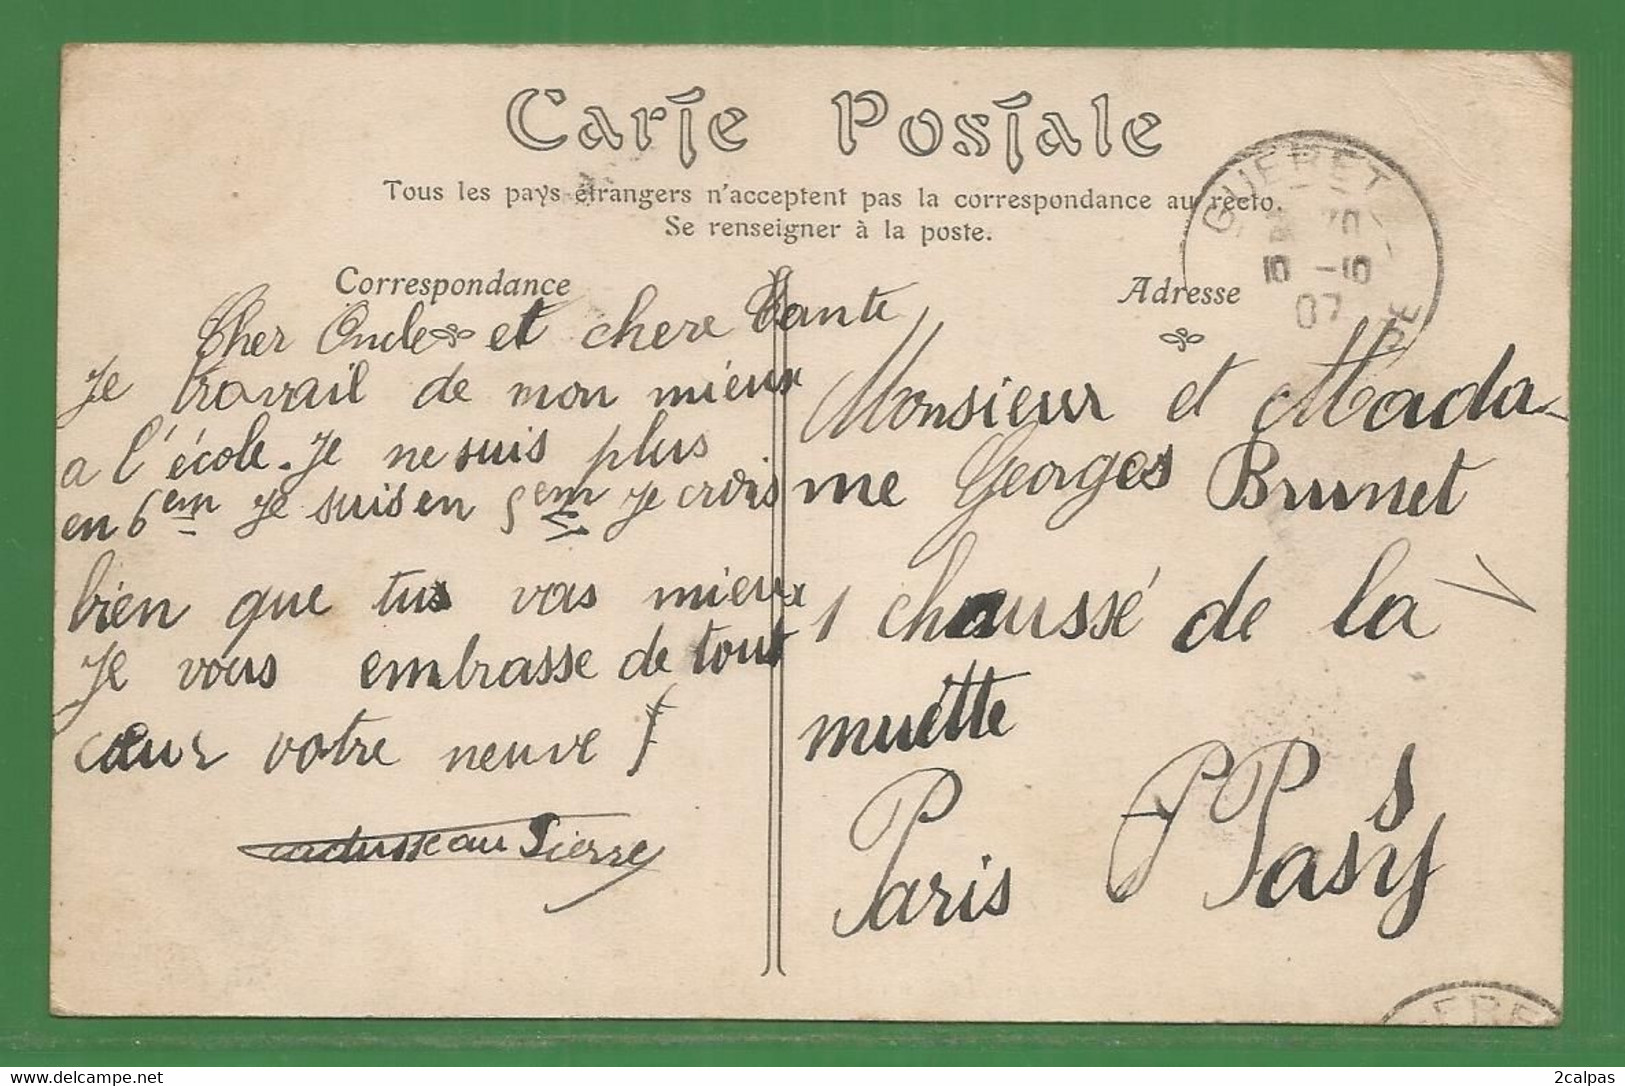 Carte Postale
Tous les pays étrangers n'acceptent pas la correspondance au recto.
Se renseigner à la poste.
Correspondance
Adresse
GUERET
07
Cher Oncle et chere Tante
Je travail de mon mieux
a l'école. Je ne suis plus
en 6em Je suis en 5em Je crois
bien que tus vas mieux
Je vous embrasse de tout
cœur votre neuve
Pierre
Monsieur et Mada-
me Georges Brunet
1 chaussé de la
muette
Paris Passy
2calpas